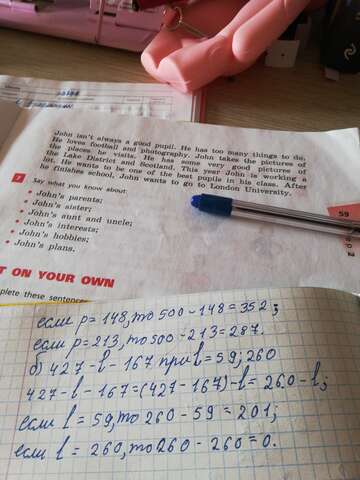 John isn't always a good pupil. He has too many things to do.
He loves football and photography. John takes the pictures of
the places he visits. He has some very good pictures of
the Lake District and Scotland. This year John is working a
lot. He wants to be one of the best pupils in his class. After
he finishes school, John wants to go to London University.
7 Say what you know about:
• John's parents;
• John's sister;
• John's aunt and uncle;
• John's interests;
• John's hobbies;
• John's plans.
59
T ON YOUR OWN
plete these sentences
если p=148, то 500-148=352;
если p=213, то 500-213=287.
б) 427-l-167 при l=59; 260
427-l-167=(427-167)-l=260-l;
если l=59, то 260-59=201;
если l=260, то 260-260=0.